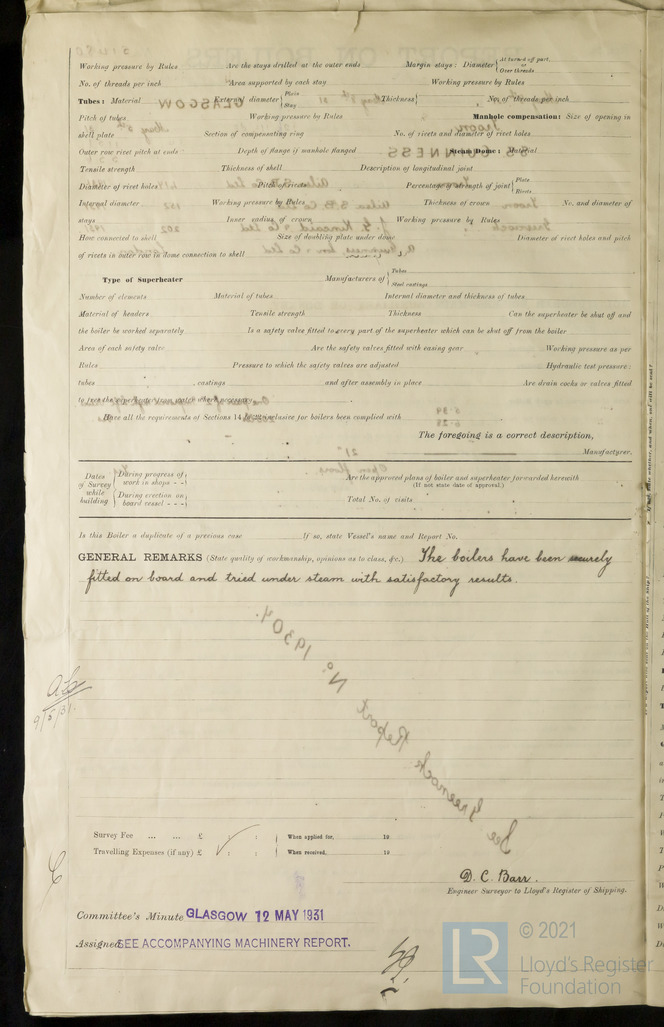 Working pressure by Rules Are the stays drilled at the outer ends Margin stays: Diameter { At turned off part, or Over threads
No. of threads per inch Area supported by each stay Working pressure by Rules
Tubes: Material External diameter { Plain Stay Thickness { No. of threads per inch
Pitch of tubes Working pressure by Rules Manhole compensation: Size of opening in
shell plate Section of compensating ring No. of rivets and diameter of rivet holes
Outer row rivet pitch at ends Depth of flange if manhole flanged Steam Dome: Material
Tensile strength Thickness of shell Description of longitudinal joint
Diameter of rivet holes Pitch of rivets Percentage of strength of joint { Plate Rivets
Internal diameter Working pressure by Rules Thickness of crown No. and diameter of
stays Inner radius of crown Working pressure by Rules
How connected to shell Size of doubling plate under dome Diameter of rivet holes and pitch
of rivets in outer row in dome connection to shell
Type of Superheater Manufacturers of { Tubes Steel castings
Number of elements Material of tubes Internal diameter and thickness of tubes
Material of headers Tensile strength Thickness Can the superheater be shut off and
the boiler be worked separately Is a safety valve fitted to every part of the superheater which can be shut off from the boiler
Area of each safety valve Are the safety valves fitted with easing gear Working pressure as per
Rules Pressure to which the safety valves are adjusted Hydraulic test pressure:
tubes , castings and after assembly in place Are drain cocks or valves fitted
to free the superheater from water where necessary
Have all the requirements of Sections 14 to inclusive for boilers been complied with
The foregoing is a correct description,
Manufacturer.
Dates of Survey while building { During progress of work in shops - - } Are the approved plans of boiler and superheater forwarded herewith
(If not state date of approval.)
{ During erection on board vessel - - - } Total No. of visits
Is this Boiler a duplicate of a previous case If so, state Vessel's name and Report No.
GENERAL REMARKS (State quality of workmanship, opinions as to class, &c.) The boilers have been securely
fitted on board and tried under steam with satisfactory results.
9/5/31.
Survey Fee ... ... £ : : } When applied for, 19
Travelling Expenses (if any) £ : : } When received, 19
D. C. Barr.
Engineer Surveyor to Lloyd's Register of Shipping.
Committee's Minute GLASGOW 12 MAY 1931
Assigned SEE ACCOMPANYING MACHINERY REPORT.
LR © 2021
Lloyd's Register
Foundation